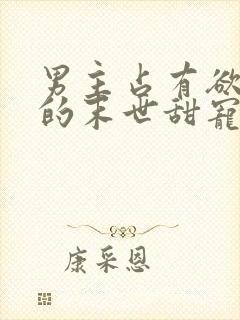 男主占有欲
的末世甜寵
康采恩